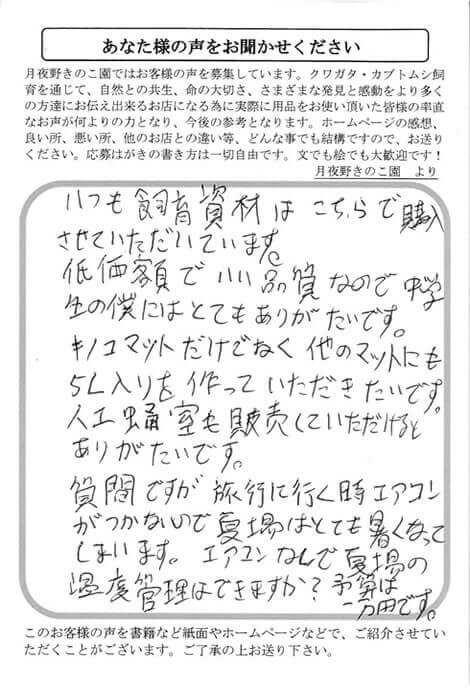 あなた様の声をお聞かせください
月夜野きのこ園ではお客様の声を募集しています。クワガタ・カブトムシ飼
育を通じて、自然との共生、命の大切さ、さまざまな発見と感動をより多く
の方達にお伝え出来るお店になる為に実際に用品をお使い頂いた皆様の率直
なお声が何よりの力となり、今後の参考となります。ホームページの感想、
良い所、悪い所、他のお店との違い等、どんな事でも結構ですので、お送り
ください。応募はがきの書き方は一切自由です。文でも絵でも大歓迎です！
月夜野きのこ園　より
いつも飼育資材はこちらで購入
させていただいています。
低価額でいい品質なので中学
生の僕にはとてもありがたいです。
キノコマットだけでなく他のマットにも
5L入りを作っていただきたいです。
人工蛹室も販売していただけると
ありがたいです。
質問ですが旅行に行く時エアコン
がつかないので夏場はとても暑くなって
しまいます。エアコンなんで夏場の
温度管理はできますか？予算は
一万円です。
このお客様の声を書籍など紙面やホームページなどで、ご紹介させてい
ただくことがございます。ご了承の上お送り下さい。